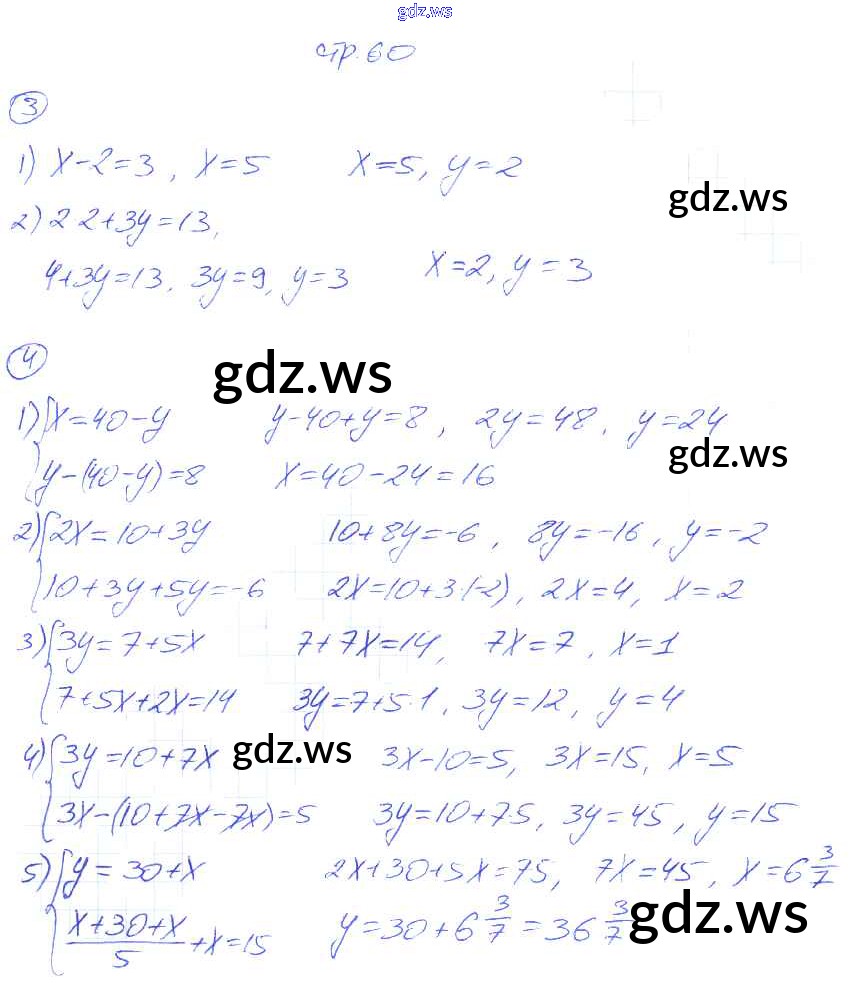 gdz.ws
стр. 60
3
1) x-2=3, x=5 x=5, y=2
gdz.ws
2) 2·2+3y=13,
4+3y=13, 3y=9, y=3 x=2, y=3
4
gdz.ws
1) { x=40-y y-40+y=8, 2y=48, y=24
gdz.ws
y-(40-y)=8 x=40-24=16
2) { 2x=10+3y 10+8y=-6, 8y=-16, y=-2
10+3y+5y=-6 2x=10+3·(-2), 2x=4, x=2
3) { 3y=7+5x 7+7x=14, 7x=7, x=1
7+5x+2x=14 3y=7+5·1, 3y=12, y=4
4) { 3y=10+7x gdz.ws 3x-10=5, 3x=15, x=5
3x-(10+7x-7x)=5 3y=10+75, 3y=45, y=15
5) { y=30+x 2x+30+5x=75, 7x=45, x=6 3/7
(x+30+x)/5+x=15 y=30+6 3/7=36 3/7
gdz.ws